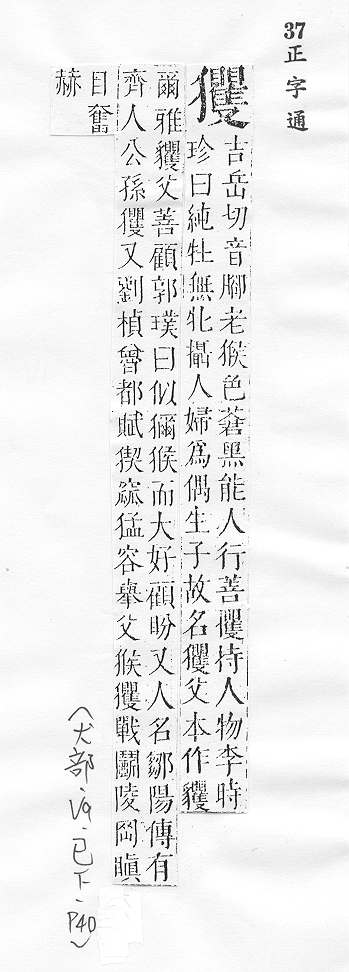 37 正字通
玃
吉岳切音腳老猴色蒼黑能人行善攫持人物李時
珍曰純牡無牝攝人婦爲偶生子故名玃父本作貜
爾雅貜父善顧郭璞曰似獼猴而大好顧盼又人名鄒陽傳有
齊人公孫玃又劉楨魯都賦猰窳猛容舉父猴玃戰鬭陵岡瞋
目奮
赫
(犬部、巳下、P40)